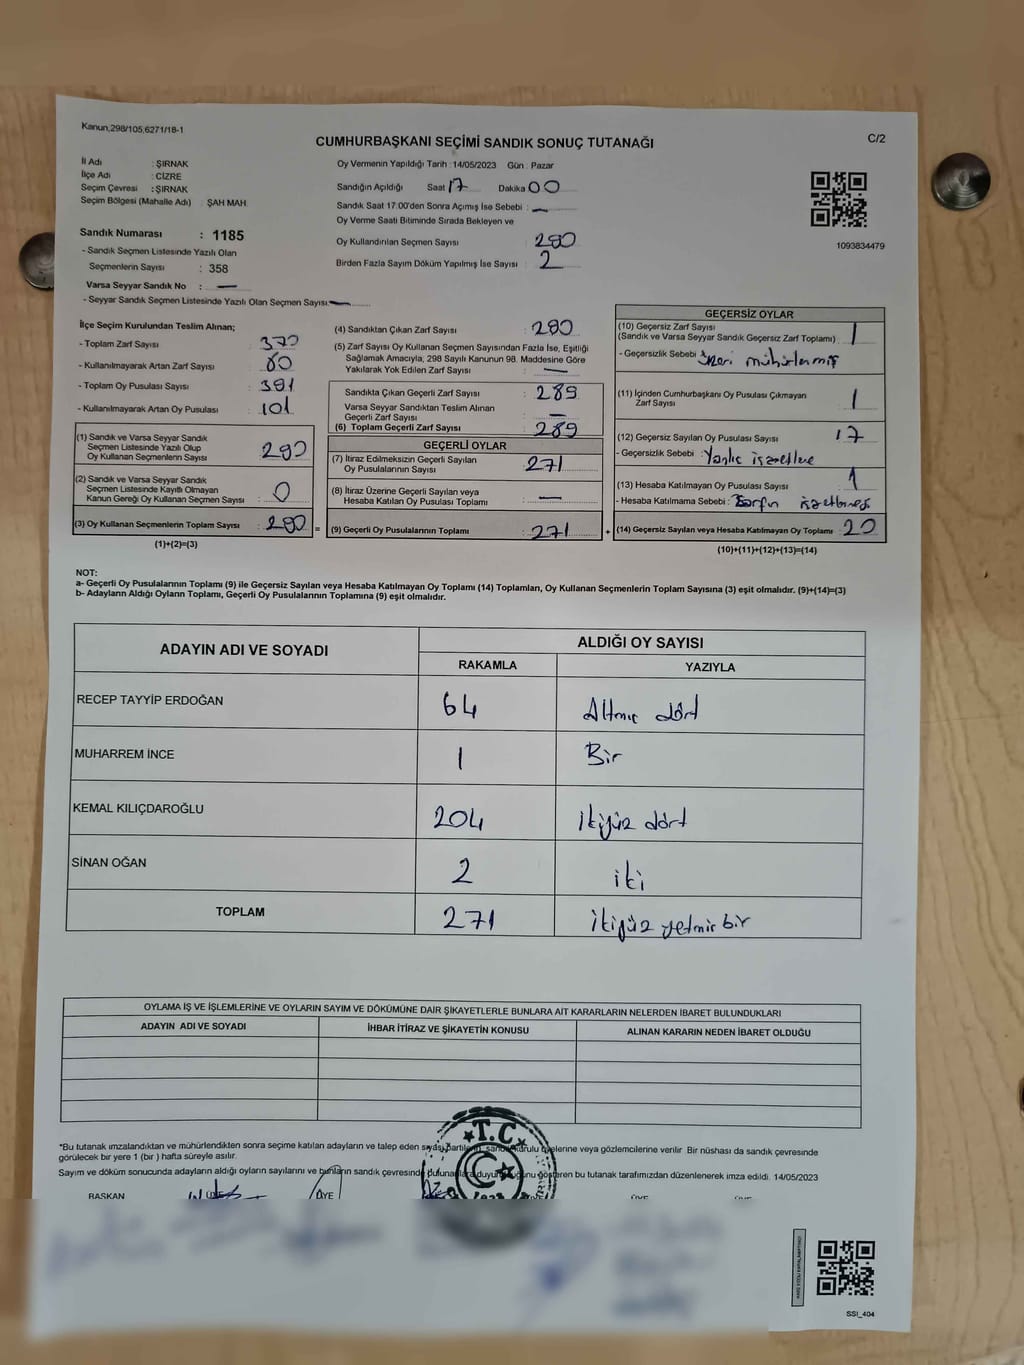 Kanun,298/105,6271/18-1
C/2
CUMHURBAŞKANI SEÇİMİ SANDIK SONUÇ TUTANAĞI
İl Adı : ŞIRNAK
İlçe Adı : CİZRE
Seçim Çevresi : ŞIRNAK
Seçim Bölgesi (Mahalle Adı) : ŞAH MAH.
Sandık Numarası : 1185
- Sandık Seçmen Listesinde Yazılı Olan
Seçmenlerin Sayısı : 358
Varsa Seyyar Sandık No : —
- Seyyar Sandık Seçmen Listesinde Yazılı Olan Seçmen Sayısı: —
Oy Vermenin Yapıldığı Tarih : 14/05/2023 Gün : Pazar
Sandığın Açıldığı Saat 17 Dakika 00
Sandık Saat 17.00'den Sonra Açımış İse Sebebi : —
Oy Verme Saati Bitiminde Sırada Bekleyen ve
Oy Kullandırılan Seçmen Sayısı : 290
Birden Fazla Sayım Döküm Yapılmış İse Sayısı : 2
1093834479
İlçe Seçim Kurulundan Teslim Alınan;
- Toplam Zarf Sayısı : 370
- Kullanılmayarak Artan Zarf Sayısı : 80
- Toplam Oy Pusulası Sayısı : 391
- Kullanılmayarak Artan Oy Pusulası : 101
(1) Sandık ve Varsa Seyyar Sandık
Seçmen Listesinde Yazılı Olup
Oy Kullanan Seçmenlerin Sayısı : 290
(2) Sandık ve Varsa Seyyar Sandık
Seçmen Listesinde Kayıtlı Olmayan
Kanun Gereği Oy Kullanan Seçmen Sayısı : 0
(3) Oy Kullanan Seçmenlerin Toplam Sayısı : 290 =
(1)+(2)=(3)
(4) Sandıktan Çıkan Zarf Sayısı : 290
(5) Zarf Sayısı Oy Kullanan Seçmen Sayısından Fazla İse, Eşitliği
Sağlamak Amacıyla, 298 Sayılı Kanunun 98. Maddesine Göre
Yakılarak Yok Edilen Zarf Sayısı : —
Sandıkta Çıkan Geçerli Zarf Sayısı : 289
Varsa Seyyar Sandıktan Teslim Alınan
Geçerli Zarf Sayısı : —
(6) Toplam Geçerli Zarf Sayısı : 289
GEÇERLİ OYLAR
(7) İtiraz Edilmeksizin Geçerli Sayılan
Oy Pusulalarının Sayısı : 271
(8) İtiraz Üzerine Geçerli Sayılan veya
Hesaba Katılan Oy Pusulası Toplamı : —
(9) Geçerli Oy Pusulalarının Toplamı : 271 +
GEÇERSİZ OYLAR
(10) Geçersiz Zarf Sayısı
(Sandık ve Varsa Seyyar Sandık Geçersiz Zarf Toplamı) : 1
- Geçersizlik Sebebi : mühürlenmiş
(11) İçinden Cumhurbaşkanı Oy Pusulası Çıkmayan
Zarf Sayısı : 1
(12) Geçersiz Sayılan Oy Pusulası Sayısı : 17
- Geçersizlik Sebebi : Yanlış işaretleme
(13) Hesaba Katılmayan Oy Pusulası Sayısı : 1
- Hesaba Katılmama Sebebi : Zarfın
(14) Geçersiz Sayılan veya Hesaba Katılmayan Oy Toplamı : 20
(10)+(11)+(12)+(13)=(14)
NOT:
a- Geçerli Oy Pusulalarının Toplamı (9) ile Geçersiz Sayılan veya Hesaba Katılmayan Oy Toplamı (14) Toplamları, Oy Kullanan Seçmenlerin Toplam Sayısına (3) eşit olmalıdır. (9)+(14)=(3)
b- Adayların Aldığı Oyların Toplamı, Geçerli Oy Pusulalarının Toplamına (9) eşit olmalıdır.
ADAYIN ADI VE SOYADI
ALDIĞI OY SAYISI
RAKAMLA YAZIYLA
RECEP TAYYİP ERDOĞAN 64 Altmış dört
MUHARREM İNCE 1 Bir
KEMAL KILIÇDAROĞLU 204 İkiyüz dört
SİNAN OĞAN 2 iki
TOPLAM 271 ikiyüz yetmiş bir
OYLAMA İŞ VE İŞLEMLERİNE VE OYLARIN SAYIM VE DÖKÜMÜNE DAİR ŞİKAYETLERLE BUNLARA AİT KARARLARIN NELERDEN İBARET BULUNDUKLARI
ADAYIN ADI VE SOYADI İHBAR İTİRAZ VE ŞİKAYETİN KONUSU ALINAN KARARIN NEDEN İBARET OLDUĞU
*Bu tutanak imzalandıktan ve mühürlendikten sonra seçime katılan adayların ve talep eden siyasi partilerin sandık kurulu üyelerine veya gözlemcilerine verilir. Bir nüshası da sandık çevresinde
görülecek bir yere 1 (bir ) hafta süreyle asılır.
Sayım ve döküm sonucunda adayların aldığı oyların sayılarını ve bunların sandık çevresinde duyurulduğunu gösteren bu tutanak tarafımızdan düzenlenerek imza edildi. 14/05/2023
T.C.
1923
BAŞKAN ÜYE ÜYE
SSI_404